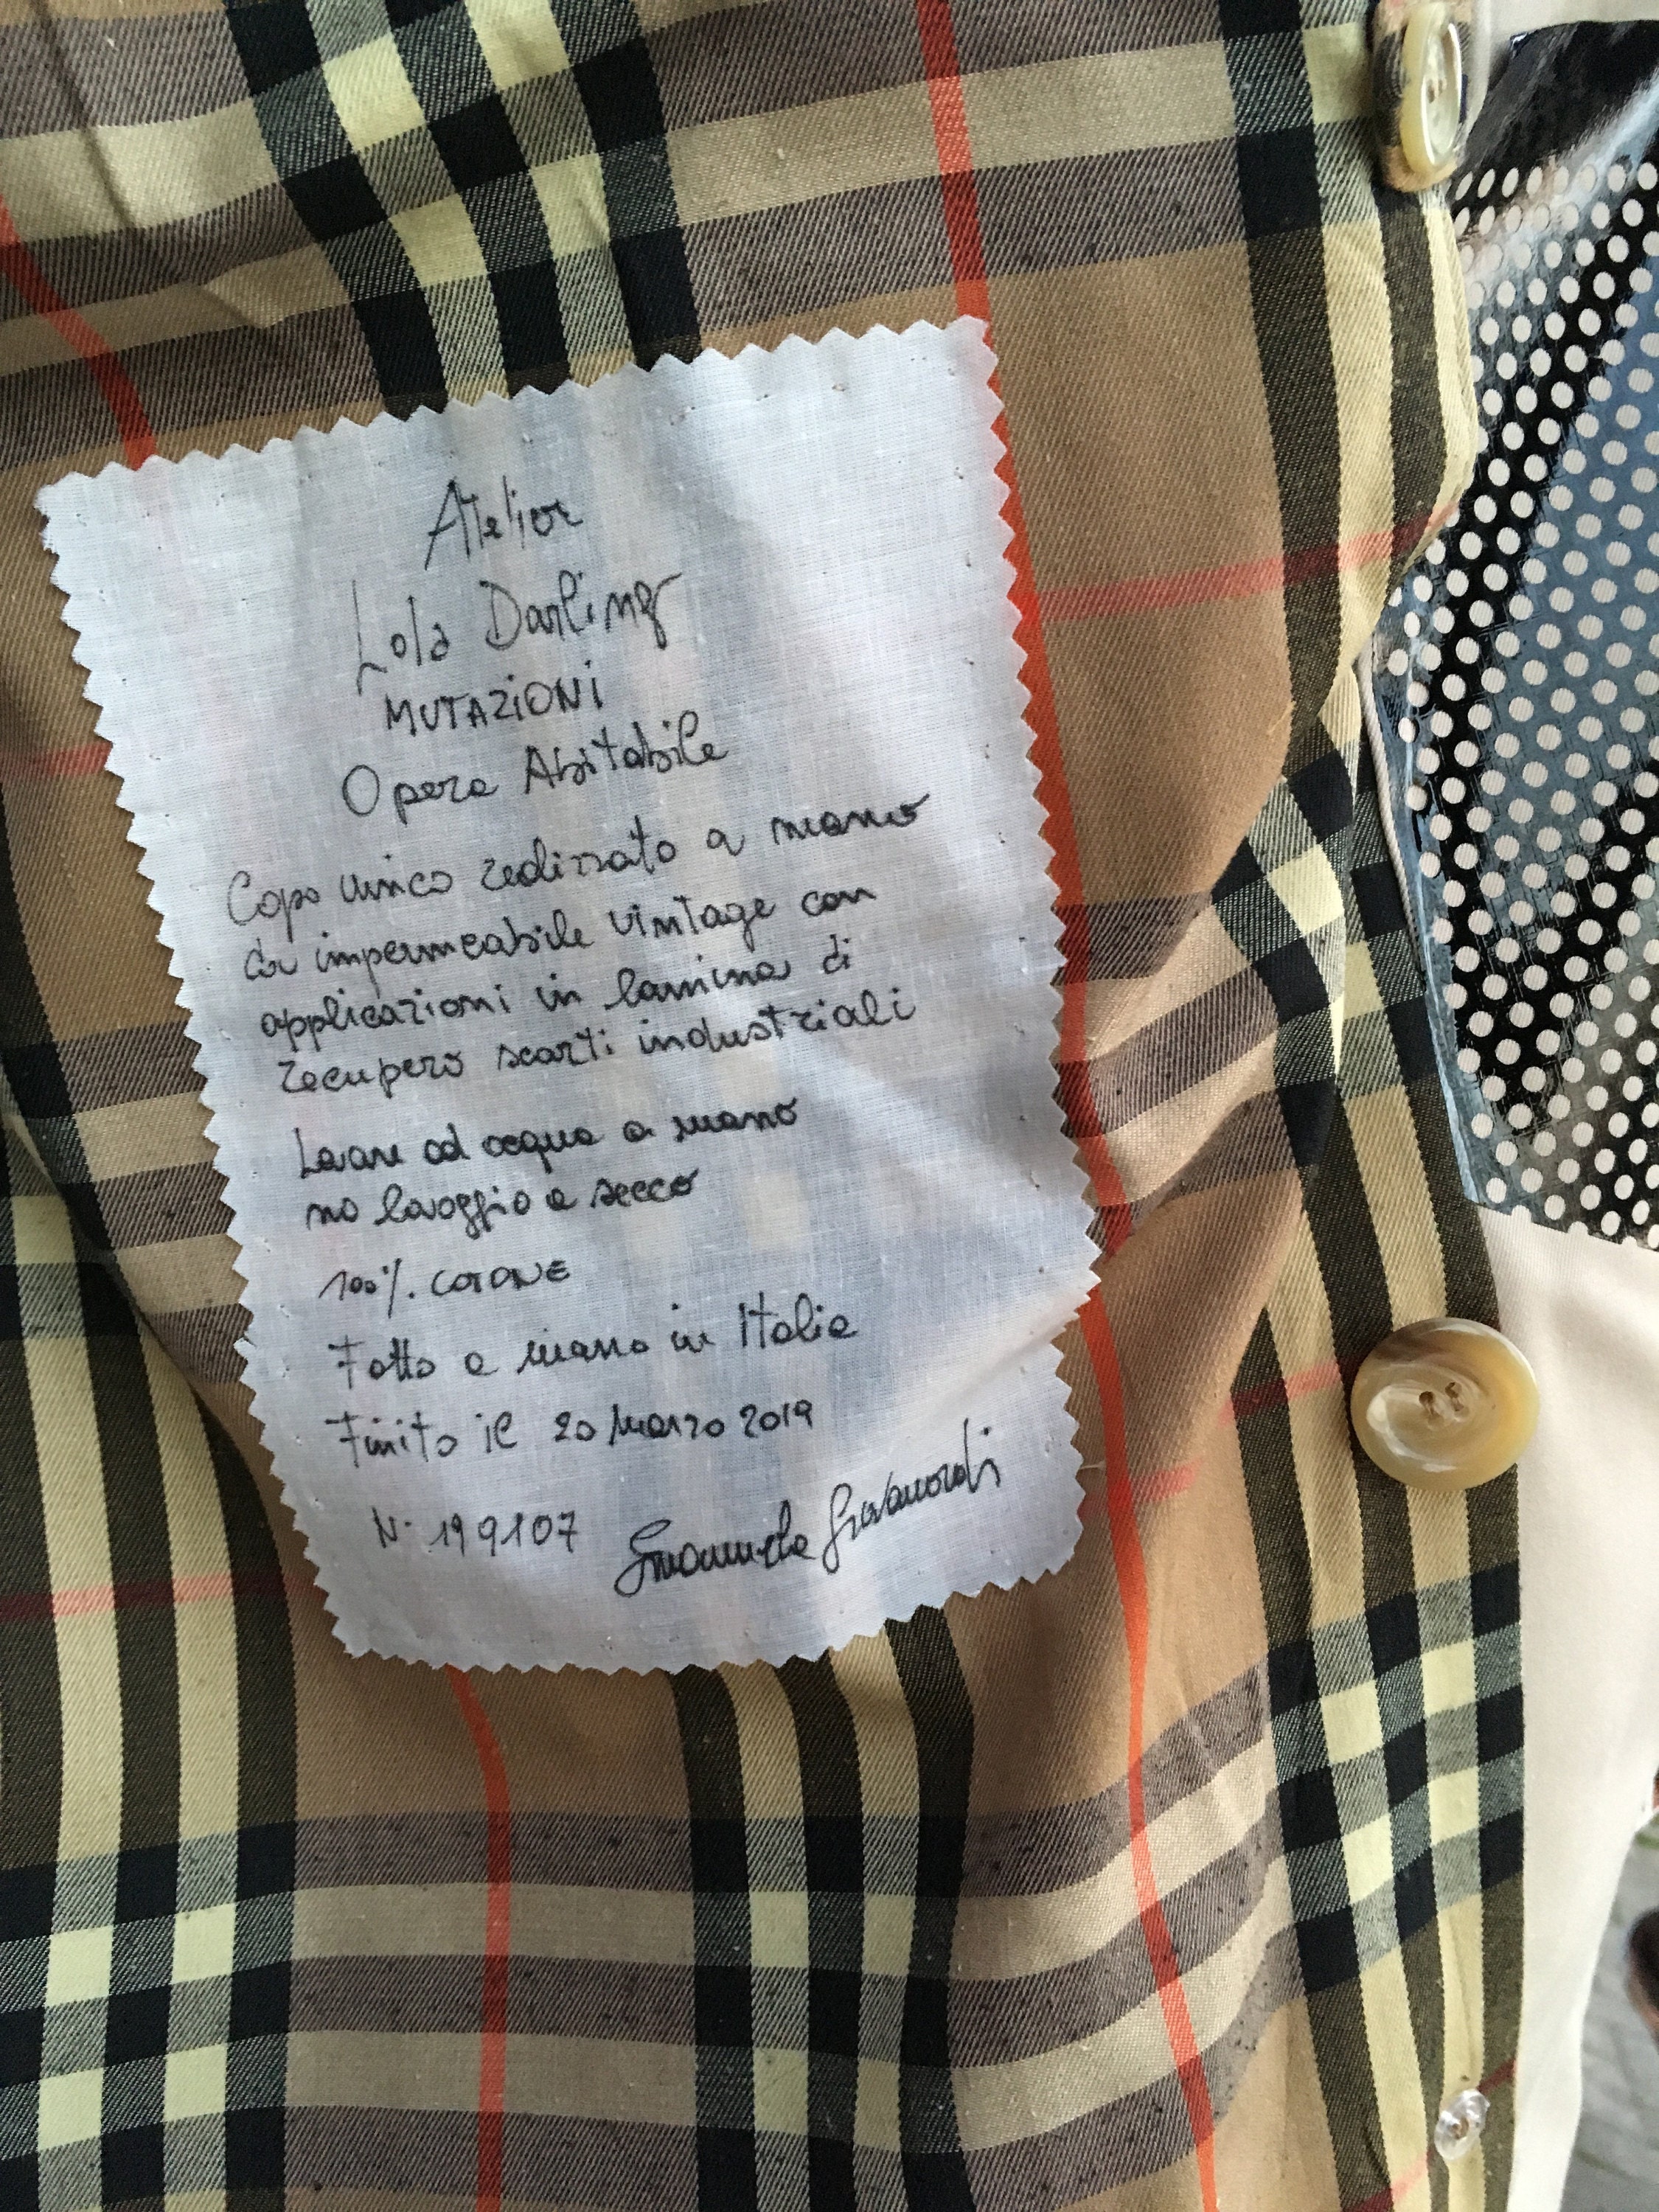 Atelier
Lola Darling
MUTAZIONI
Opera Abitabile
Capo unico realizzato a mano
da impermeabile vintage con
applicazioni in lamina di
recupero scarti industriali
Lavare ad acqua a mano
no lavaggio a secco
100%. COTONE
Fatto a mano in Italia
Finito il 20 Marzo 2019
N. 199107 Emanuela